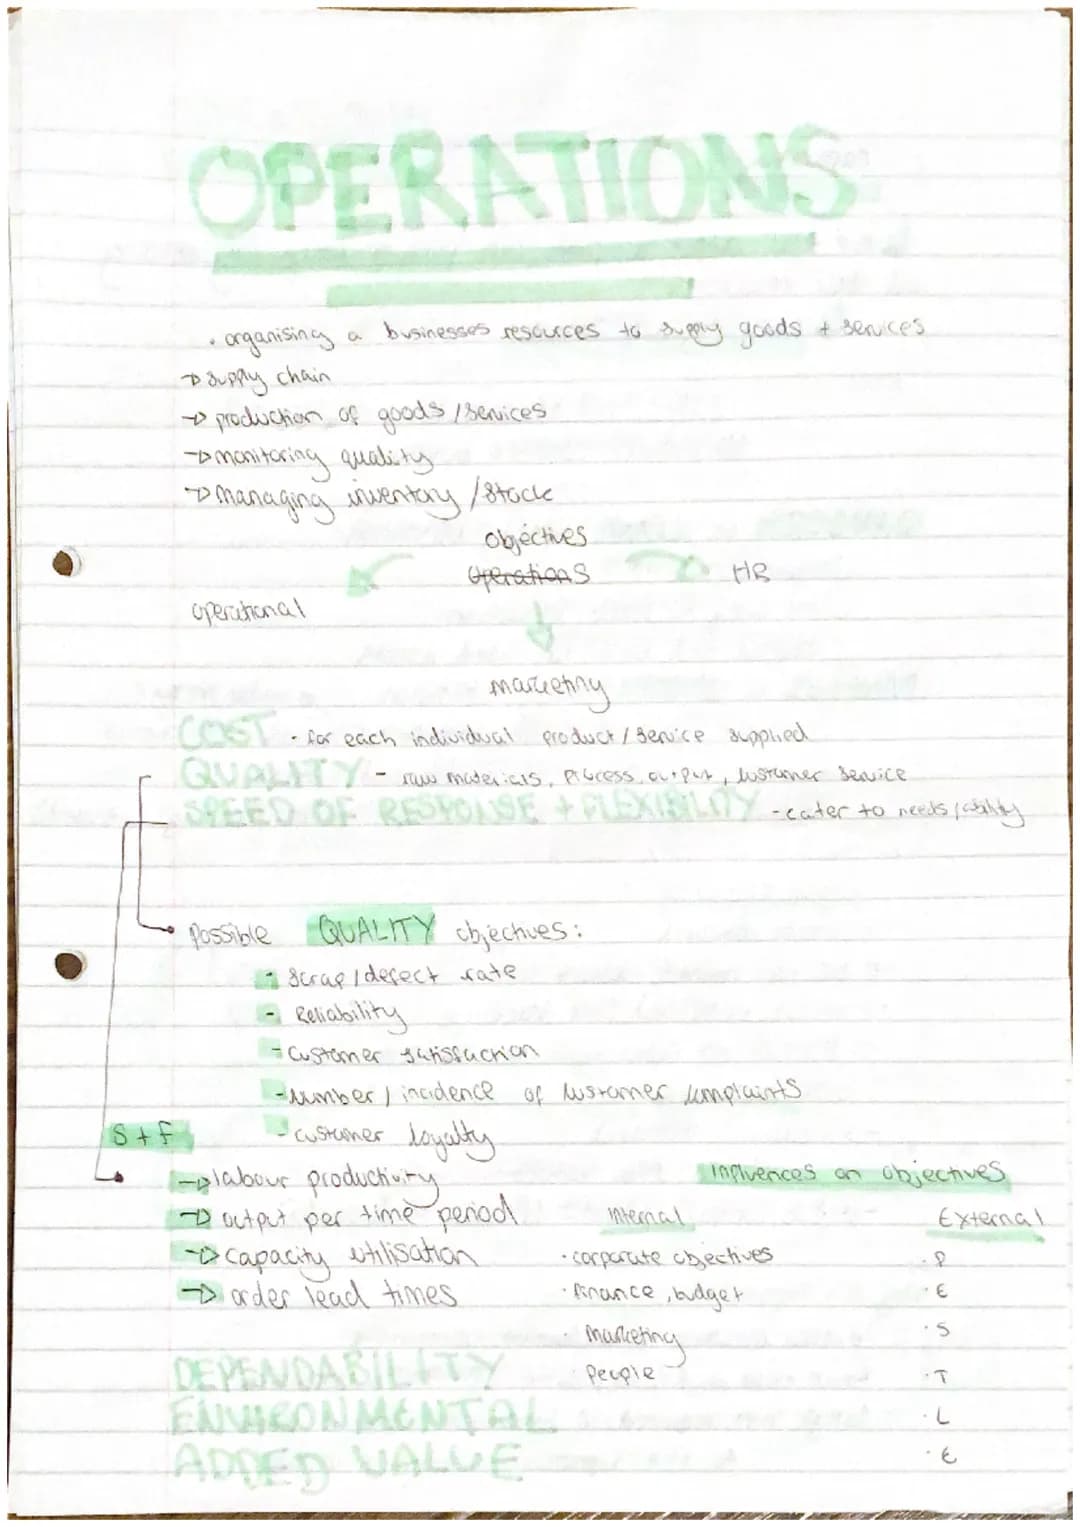 OPERATIONS
• organising a businesses resources to supply goods + services
→ supply chain
→ production of goods / services
→ monitoring quality
→ managing inventory / stock
objectives
operations
HR
operational
marketing
COST - for each individual product / service supplied
QUALITY - raw materials, process, output, customer service
SPEED OF RESPONSE + FLEXIBILITY - cater to needs / ability
possible QUALITY objectives:
- scrap / defect rate
- Reliability
- customer satisfaction
- number / incidence of customer complaints
- customer loyalty
S + F
→ labour productivity
→ output per time period
→ capacity utilisation
→ order lead times
Influences on objectives
Internal
• corporate objectives
• finance, budget
• marketing
• People
External
• P
• E
• S
• T
• L
• E
DEPENDABILITY
ENVIRONMENTAL
ADDED VALUE